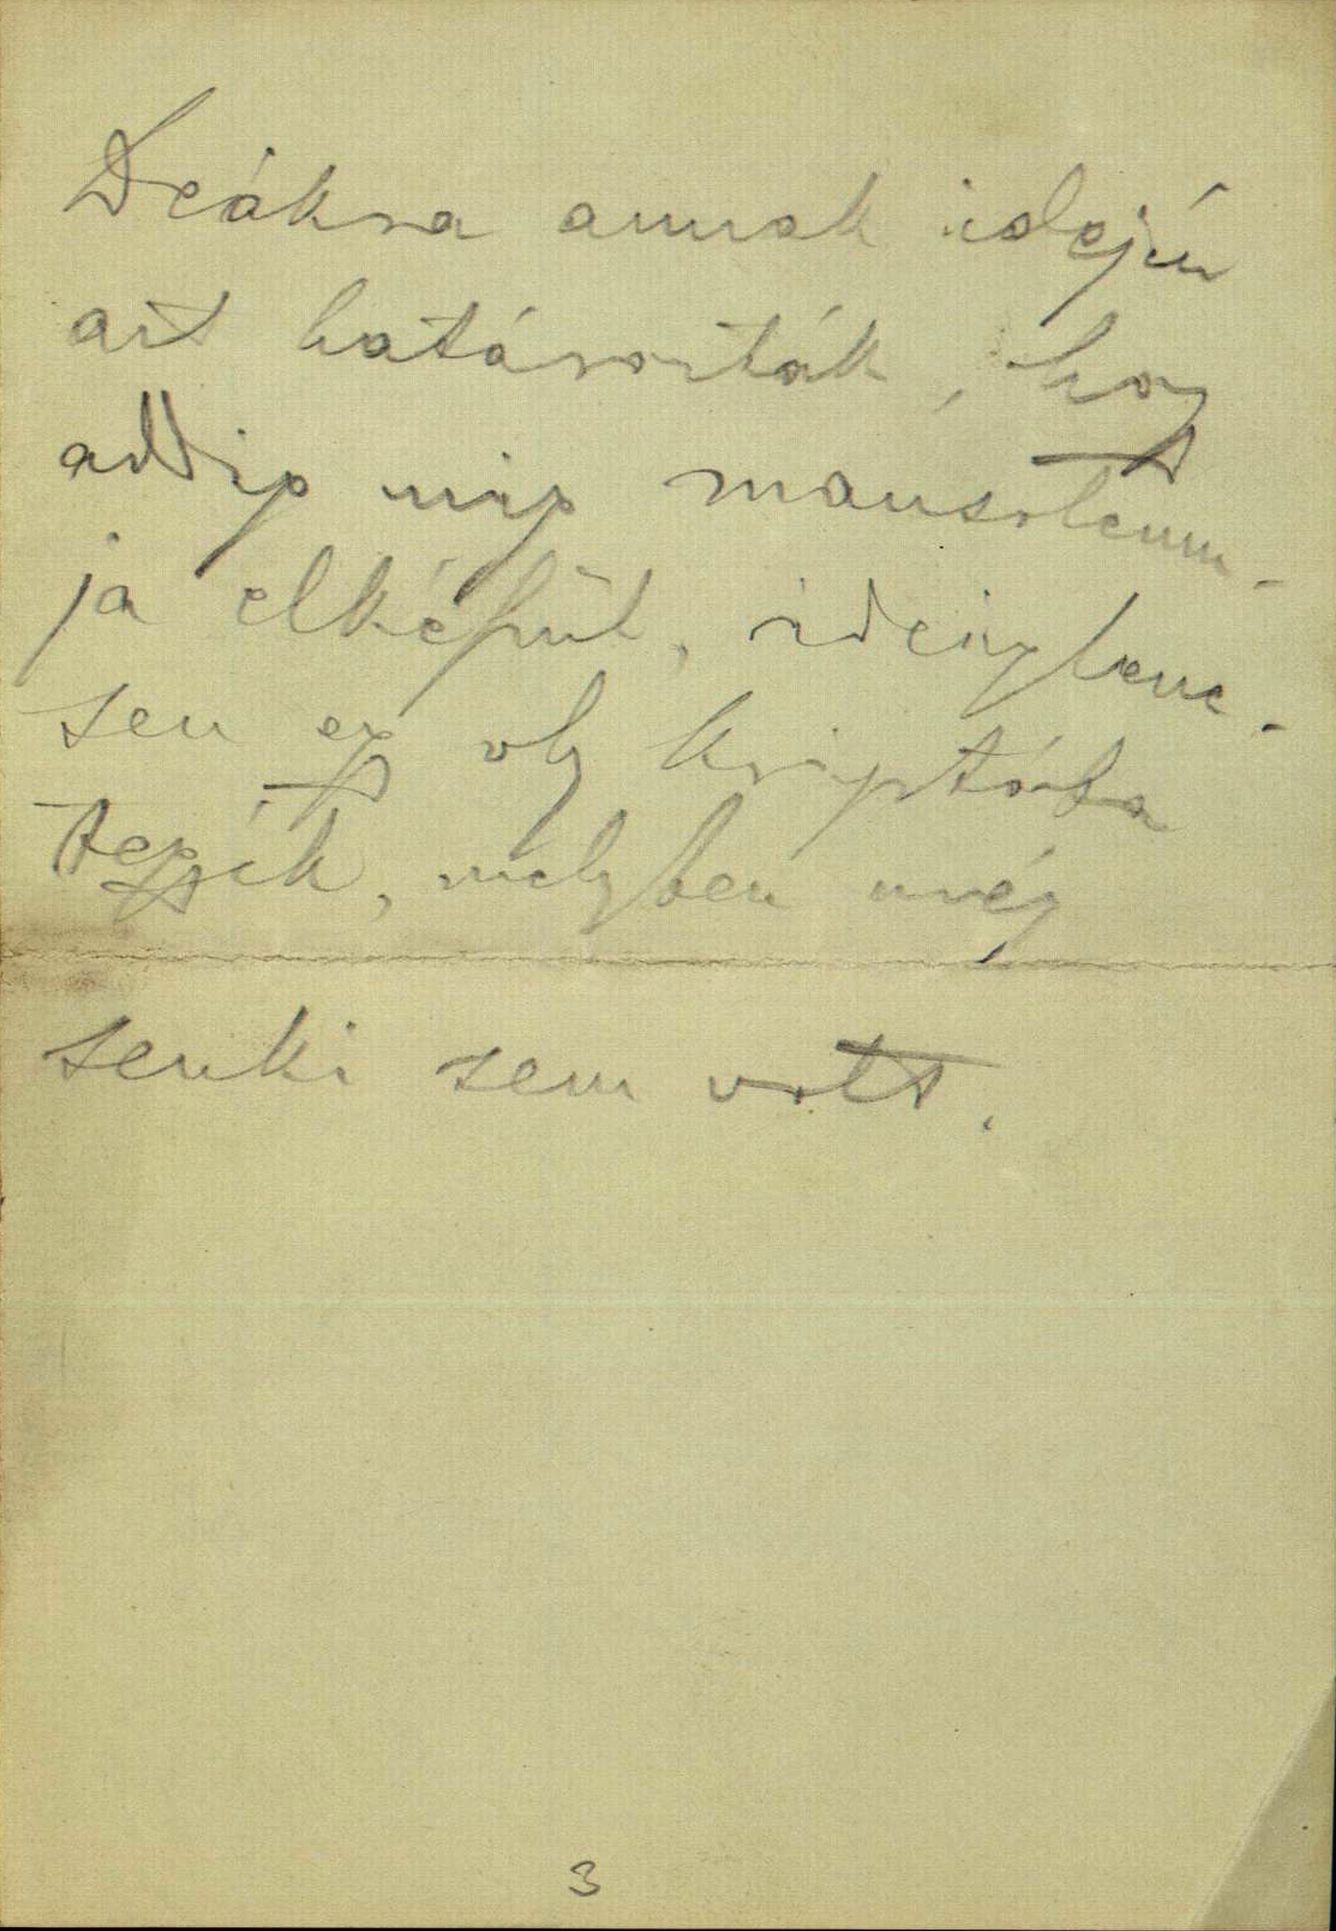 Deákra annak idején
azt határozták, hogy
addig míg mausoleum-
ja elkészül, ideiglene-
sen egy oly kriptába
tegyék, melyben még
senki sem volt.
3